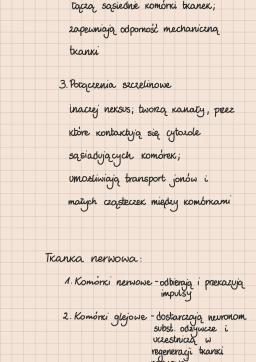 łączą sąsiednie komórki tkanek;
zapewniają odporność mechaniczną
tkanki
3. Połączenia szczelinowe
inaczej neksus; tworzą kanały, przez
które kontaktują się cytozole
sąsiadujących komórek;
umożliwiają transport jonów i
małych cząsteczek między komórkami
Tkanka nerwowa:
1. Komórki nerwowe - odbierają i przekazują
impulsy
2. Komórki glejowe - dostarczają neuronom
subst. odżywcze i
uczestniczą w
regeneracji tkanki